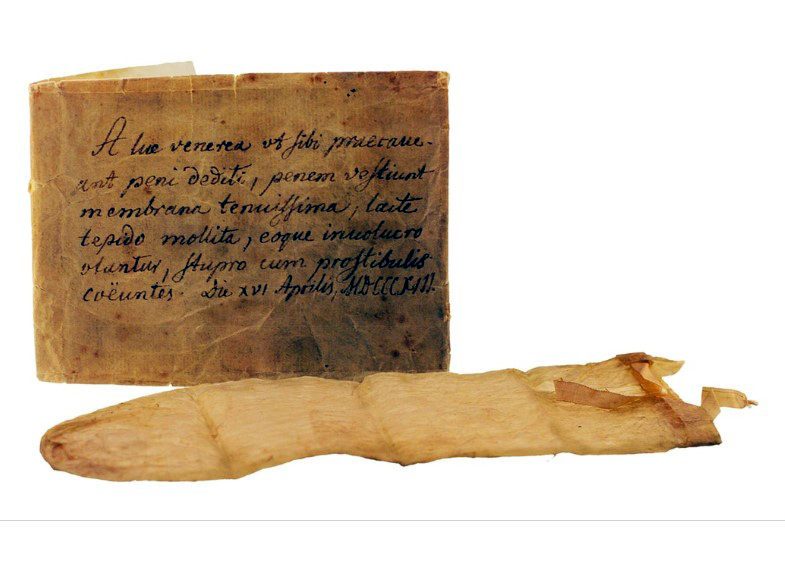 A lue venerea ut sibi praecave-
ant peni dediti, penem vestiunt
membrana tenuissima, lacte
tepido mollita, eoque involucro
utantur, stupro cum prostibulis
coëuntes. Die XVI Aprilis, MDCCCXIII.